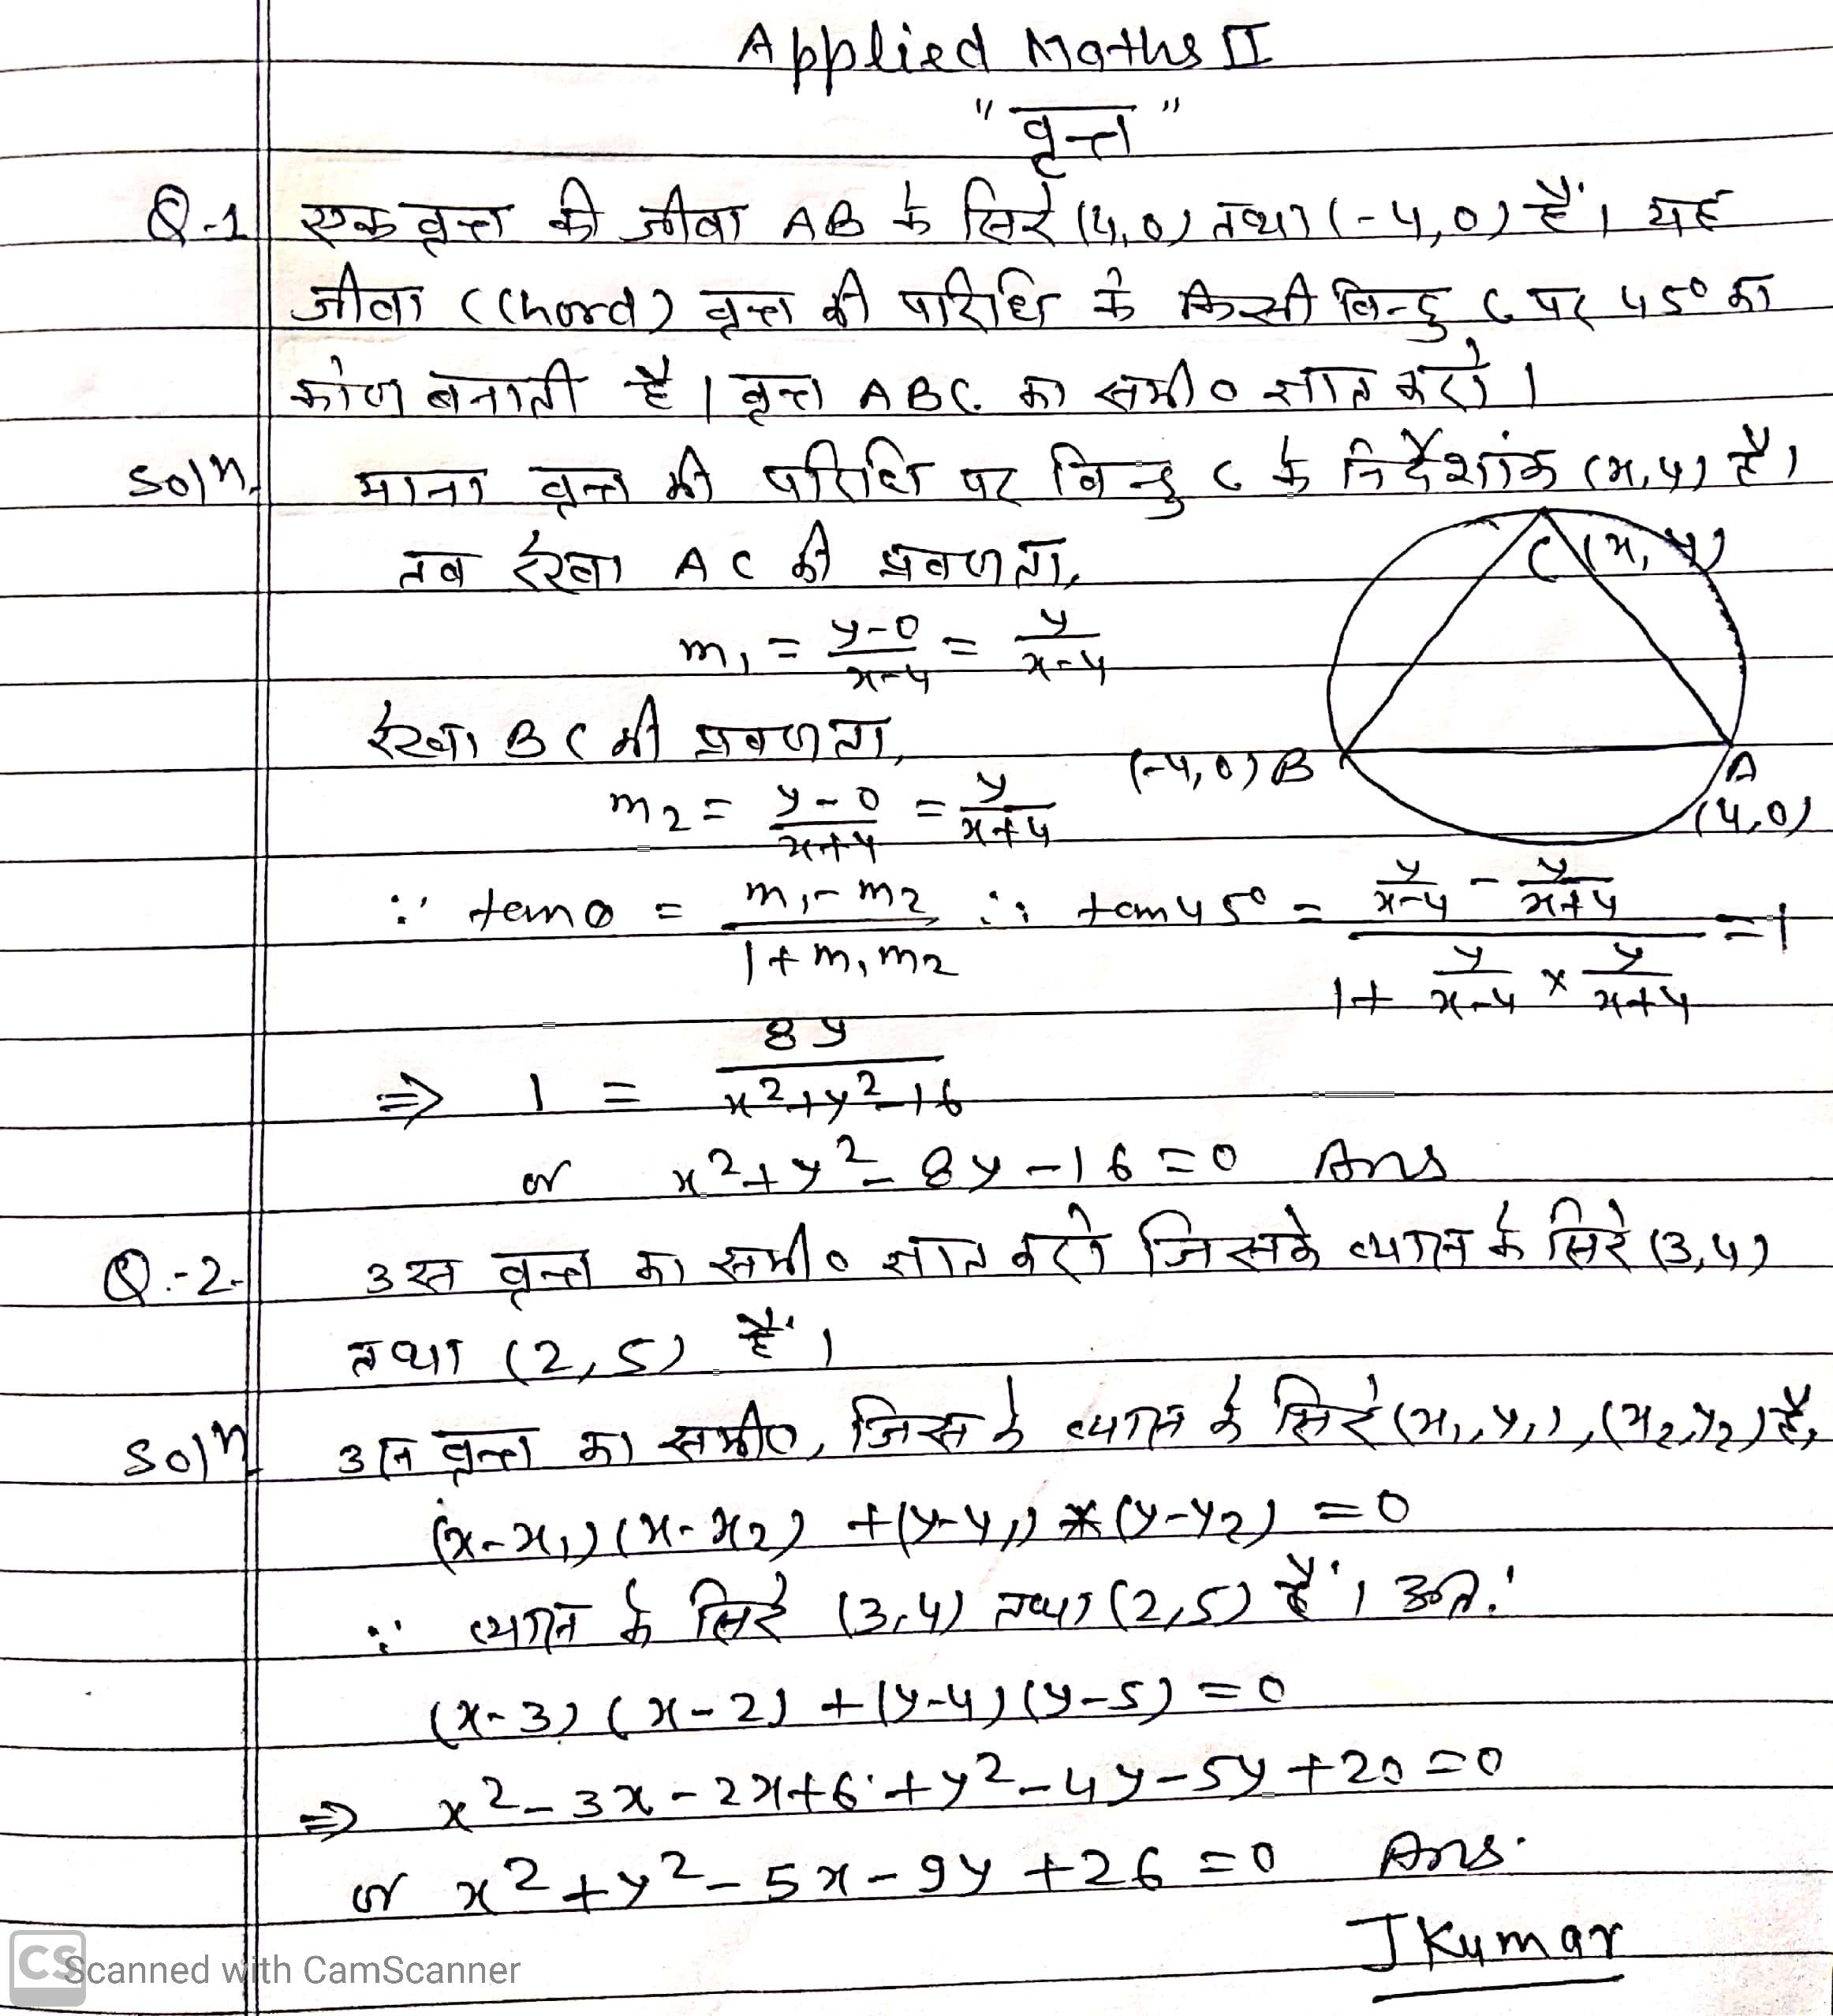 Applied Maths II
"वृत्त"
Q-1 एक वृत्त की जीवा AB के सिरे (4,0) तथा (-4,0) हैं। यह
जीवा (Chord) वृत्त की परिधि के किसी बिन्दु C पर 45° का
कोण बनाती है। वृत्त ABC का समी० ज्ञात करो।
Solⁿ. माना वृत्त की परिधि पर बिन्दु C के निर्देशांक (x,y) है।
तब रेखा AC की प्रवणता,
C(x, y)
m₁ = (y-0)/(x-4) = y/(x-4)
रेखा BC की प्रवणता,
(-4,0) B
A
(4,0)
m₂ = (y-0)/(x+4) = y/(x+4)
∵ tanθ = (m₁-m₂)/(1+m₁m₂) ∴ tan45° = (y/(x-4) - y/(x+4))/(1+ y/(x-4) × y/(x+4)) = 1
⇒ 1 = 8y/(x²+y²-16)
or x²+y²-8y-16=0 Ans
Q.-2. उस वृत्त का समी० ज्ञात करो जिसके व्यास के सिरे (3,4)
तथा (2,5) हैं।
Solⁿ उस वृत्त का समी०, जिस के व्यास के सिरे (x₁,y₁),(x₂,y₂) है,
(x-x₁)(x-x₂) +(y-y₁)*(y-y₂) =0
∵ व्यास के सिरे (3,4) तथा (2,5) हैं। अतः
(x-3)(x-2)+(y-4)(y-5)=0
⇒ x²-3x-2x+6+y²-4y-5y+20=0
or x²+y²-5x-9y+26=0 Ans.
JKumar
CS Scanned with CamScanner